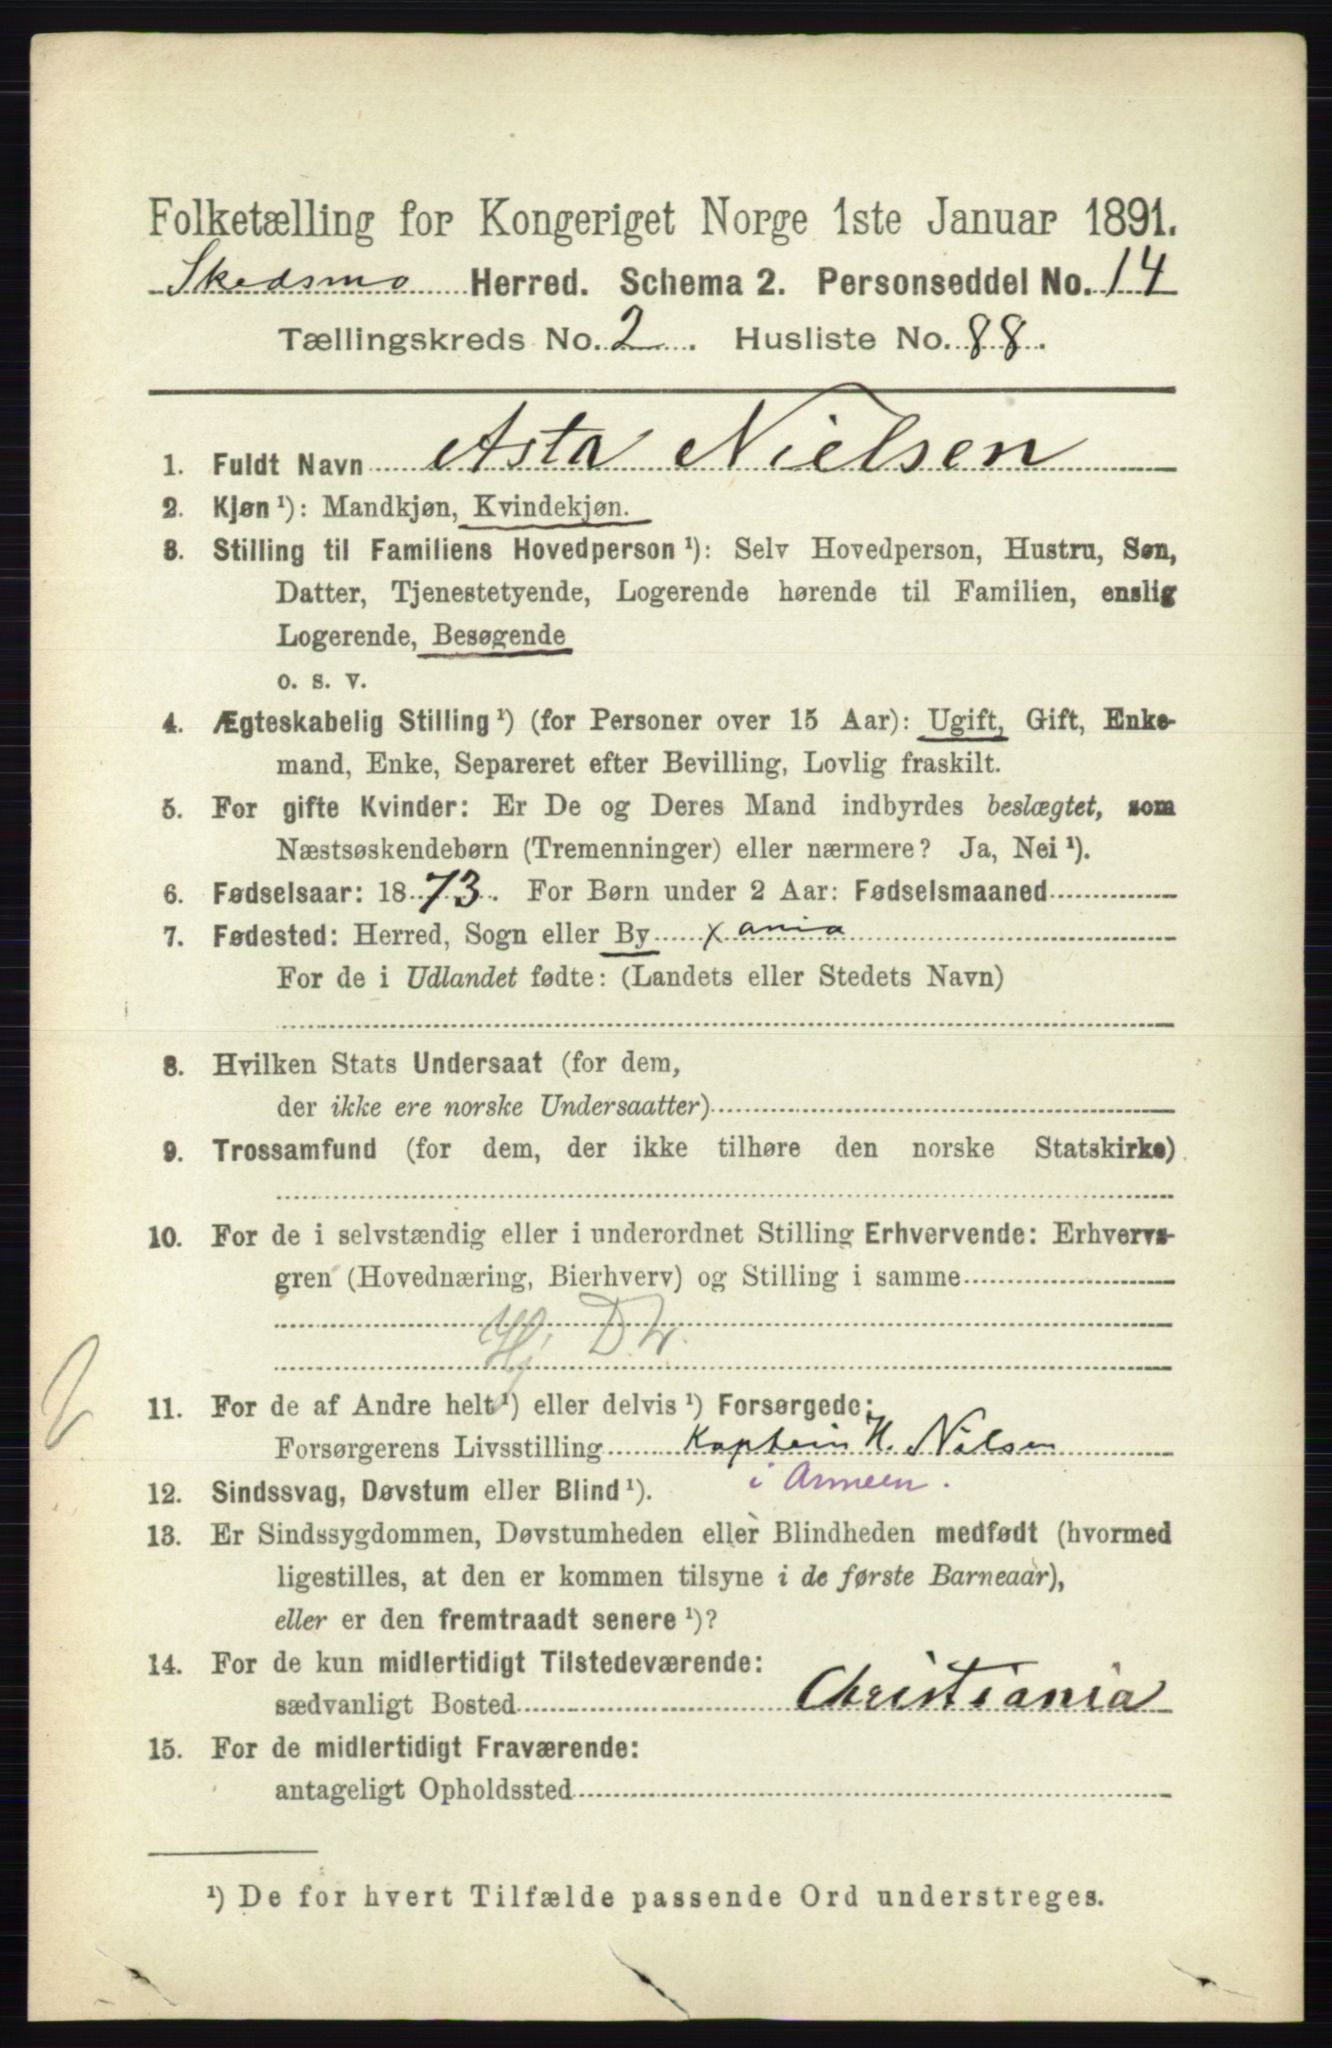 Folketælling for Kongeriget Norge 1ste Januar 1891.
Skedsmo Herred. Schema 2. Personseddel No. 14
Tællingskreds No. 2. Husliste No. 88.
1. Fuldt Navn Asta Nielsen
2. Kjøn ¹): Mandkjøn, Kvindekjøn.
3. Stilling til Familiens Hovedperson ¹): Selv Hovedperson, Hustru, Søn,
Datter, Tjenestetyende, Logerende hørende til Familien, enslig
Logerende, Besøgende
o. s. v.
4. Ægteskabelig Stilling ¹) (for Personer over 15 Aar): Ugift, Gift, Enke-
mand, Enke, Separeret efter Bevilling, Lovlig fraskilt.
5. For gifte Kvinder: Er De og Deres Mand indbyrdes beslægtet, som
Næstsøskendebørn (Tremenninger) eller nærmere? Ja, Nei ¹).
6. Fødselsaar: 1873. For Børn under 2 Aar: Fødselsmaaned
7. Fødested: Herred, Sogn eller By Xania
For de i Udlandet fødte: (Landets eller Stedets Navn)
8. Hvilken Stats Undersaat (for dem,
der ikke ere norske Undersaatter)
9. Trossamfund (for dem, der ikke tilhøre den norske Statskirke)
10. For de i selvstændig eller i underordnet Stilling Erhvervende: Erhvervs-
gren (Hovednæring, Bierhverv) og Stilling i samme
Hj Dtr.
11. For de af Andre helt ¹) eller delvis ¹) Forsørgede:
Forsørgerens Livsstilling Kaptein H. Nilsen
i Armeen.
12. Sindssvag, Døvstum eller Blind ¹).
13. Er Sindssygdommen, Døvstumheden eller Blindheden medfødt (hvormed
ligestilles, at den er kommen tilsyne i de første Barneaar),
eller er den fremtraadt senere ¹)?
14. For de kun midlertidigt Tilstedeværende:
sædvanligt Bosted Christiania
15. For de midlertidigt Fraværende:
antageligt Opholdssted
¹) De for hvert Tilfælde passende Ord understreges.